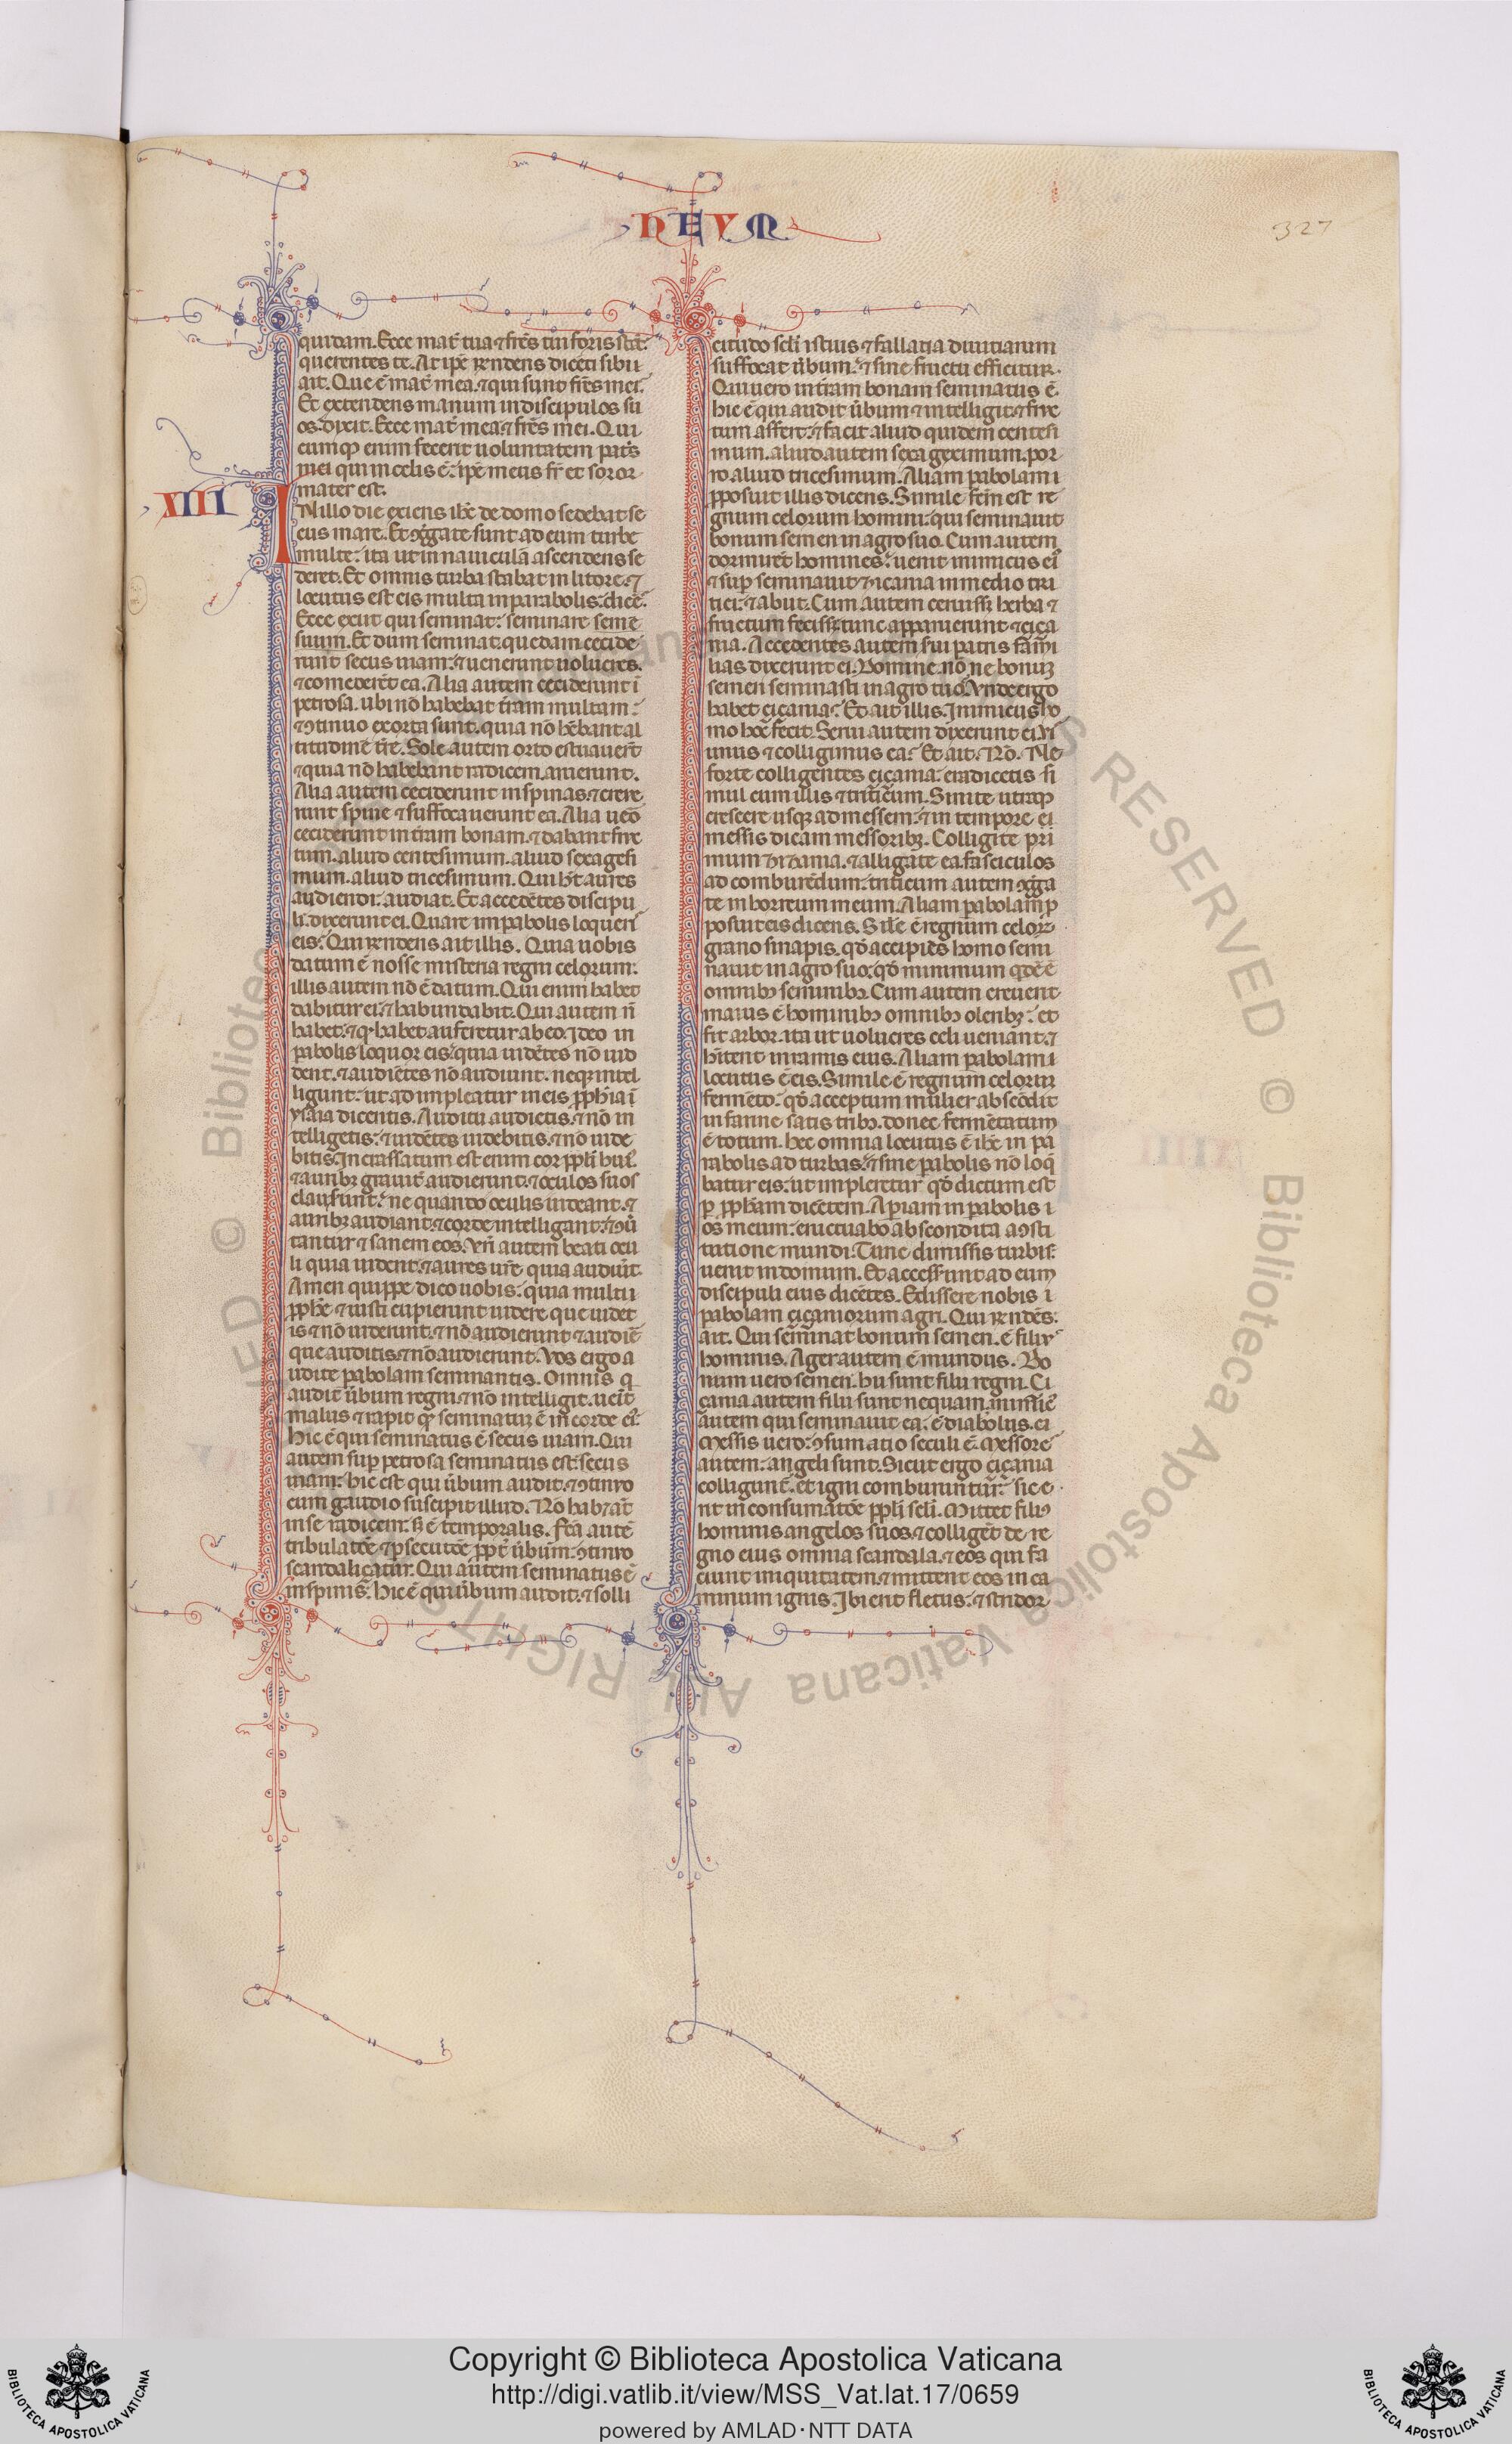 HEVM
327
quidam. Ecce mat̄ tua ⁊ fr̄es tui foris stāt
querentes te. At ip̄e rn̄dens dicēti sibi
ait. Que ē mat̄ mea. ⁊ qui sunt fr̄es mei.
Et extendens manum in discipulos su
os. dixit. Ecce mat̄ mea ⁊ fr̄es mei. Qui
cumqꝫ enim fecerit uoluntatem pat̄s
mei qui in celis ē. ip̄e meus fr̄ et soror
mater est.
XIII
IN illo die exiens ih̄c de domo sedebat se
cus mare. Et ꝯg̅gate sunt ad eum turbe
multe. ita ut in nauiculā ascendens se
deret. Et omnis turba stabat in litore. ⁊
locutus est eis multa in parabolis. dicē.
Ecce exiit qui seminat. seminare semē
suum. Et dum seminat. quedam cecide
runt secus uiam. ⁊ uenerunt uolucres.
⁊ comederēt ea. Alia autem ceciderunt ī
petrosa. ubi nō habebat t̄ram multam.
⁊ ꝯtinuo exorta sunt. quia nō hēbant al
titudinē t̄re. Sole autem orto estuauer̄t
⁊ quia nō habebant radicem. aruerunt.
Alia autem ceciderunt in spinas. ⁊ creue
runt spine ⁊ suffocauerunt ea. Alia ueō
ceciderunt in t̄ram bonam. ⁊ dabant fruc
tum. aliud centesimum. aliud sexagesi
mum. aliud tricesimum. Qui h̄t aures
audiendi. audiat. Et accedētes discipu
li. dixerunt ei. Quare in pabolis loqueri
eis. Qui rn̄dens ait illis. Quia uobis
datum ē nosse misteria regni celorum.
illis autem nō ē datum. Qui enim habet
dabitur ei. ⁊ habundabit. Qui autem n̄
habet. ⁊ qꝫ habet auferetur ab eo. Ideo in
pabolis loquor eis. quia uidētes nō uid
dent. ⁊ audiētes nō audiunt. neqꝫ intel
ligunt. ut adimpleatur in eis ꝓph̄ia ī
ysaia dicentis. Auditu audietis. ⁊ nō in
telligetis. ⁊ uidētes uidebitis. ⁊ nō uide
bitis. Incrassatum est enim cor ppli hui.
⁊ auribꝫ grauit̄ audierunt. ⁊ oculos suos
clauserunt. ne quando oculis uideant. ⁊
auribꝫ audiant. ⁊ corde intelligant. ⁊ ꝯū
tantur ⁊ sanem eos. Vr̄i autem beati ocu
li quia uident. ⁊ aures ur̄e quia audiūt.
Amen quippe dico uobis. quia multi
ꝓph̄e ⁊ iusti cupierunt uidere que uidet
is ⁊ nō uiderunt. ⁊ nō audierunt ⁊ audiē
que auditis. ⁊ nō audierunt. Vos ergo a
udite pabolam seminantis. Omnis q
audit ūbum regni. ⁊ nō intelligit. uenit̄
malus ⁊ rapit qꝫ seminatum ē in corde ei.
Hic ē qui seminatus ē secus uiam. Qui
autem sup petrosa seminatus est. secus
uiam. hic est qui ūbum audit. ⁊ ꝯtinuo
cum gaudio suscipit illud. Nō hab; aūt
in se radicem. s; ē temporalis. Fcā autē
tribulatōe ⁊ psecutōe ppt̄ ūbum. ꝯtinuo
scandaliçatur. Qui autem seminatus ē
in spinis. hic ē qui ūbum audit. ⁊ solli
citudo scl̄i istius ⁊ fallatia diuitiarum
suffocat ūbum. ⁊ sine fructu efficitur.
Qui uero in t̄ram bonam seminatus ē.
hic ē qui audit ūbum ⁊ intelligit. ⁊ fruc
tum affert. ⁊ facit aliud quidem centesi
mum. aliud autem sexagexcimum. por
ro aliud tricesimum. Aliam pabolam i
ꝓposuit illis dicens. Simile fcm̄ est re
gnum celorum homini. qui seminauit
bonum semen in agro suo. Cum autem
dormirēt homines. uenit inimicus ei
⁊ sup seminauit çiçania in medio tri
tici. ⁊ abiit. Cum autem creuissꝫ herba ⁊
fructum fecissꝫ. tunc apparuerunt ⁊ çiça
nia. Accedentes autem serui patris fami
lias dixerunt ei. Domine. nōne bonuꝫ
semen seminasti in agro tuo. Vnde ergo
habet çiçania. Et ait illis. Inimicus ho
mo hoc fecit. Serui autem dixerunt ei. Vi
imus ⁊ colligimus ea. Et ait. Nō. Ne
forte colligentes çiçania. eradicetis si
mul cum illis ⁊ triticum. Sinite utraqꝫ
crescere usqꝫ ad messem. ⁊ in tempore ei
messis dicam messoribꝫ. Colligite pri
mum çiçania. ⁊ alligate ea fasciculos
ad comburēdum. triticum autem ꝯg̅ga
te in horreum meum. Aliam pabolam ꝓ
posuit eis dicens. Simile ē regnum celoꝝ
grano sinapis. qd̄ accipiēs homo semi
nauit in agro suo. qd̄ minimum qdē ē
omnibꝫ seminibꝫ. Cum autem creuerit
maius ē hominibꝫ omnibꝫ oleribꝫ. et
fit arbor. ita ut uolucres celi ueniant. ⁊
hītent in ramis eius. Aliam pabolam i
locutus ē eis. Simile ē regnum celorum
fermēto. qd̄ acceptum mulier abscōdit
in farine satis tribꝫ. donec fermētatum
ē totum. Hec omnia locutus ē ih̄c in pa
rabolis ad turbas. ⁊ sine pabolis nō loq̄
batur eis. ut impleretur qd̄ dictum est
ꝑ ꝓph̄am dicētem. Aperiam in pabolis i
os meum. eructuabo abscondita a ꝯsti
tutione mundi. Tunc dimissis turbis.
uenit in domum. Et accesserunt ad eum
discipuli eius dicētes. Edissere nobis i
pabolam çiçaniorum agri. Qui rn̄dens.
ait. Qui seminat bonum semen. ē filius
hominis. Ager autem ē mundus. Bo
num uero semen. hii sunt filii regni. Ci
çania autem filii sunt nequam. inimicꝰ
autem qui seminauit ea. ē diabolus. ei
Messis uero. ꝯsumatio seculi ē. Messore
autem. angeli sunt. Sicut ergo çiçania
colligunt̄. et igni comburuntur. sic e
rit in consumatōe ppli scl̄i. Mittet filiꝰ
hominis angelos suos. ⁊ colligēt de re
gno eius omnia scandala. ⁊ eos qui fa
ciunt iniquitatem. ⁊ mittent eos in ca
minum ignis. Ibi erit fletus. ⁊ stridor
Copyright © Biblioteca Apostolica Vaticana
http://digi.vatlib.it/view/MSS_Vat.lat.17/0659
powered by AMLAD·NTT DATA